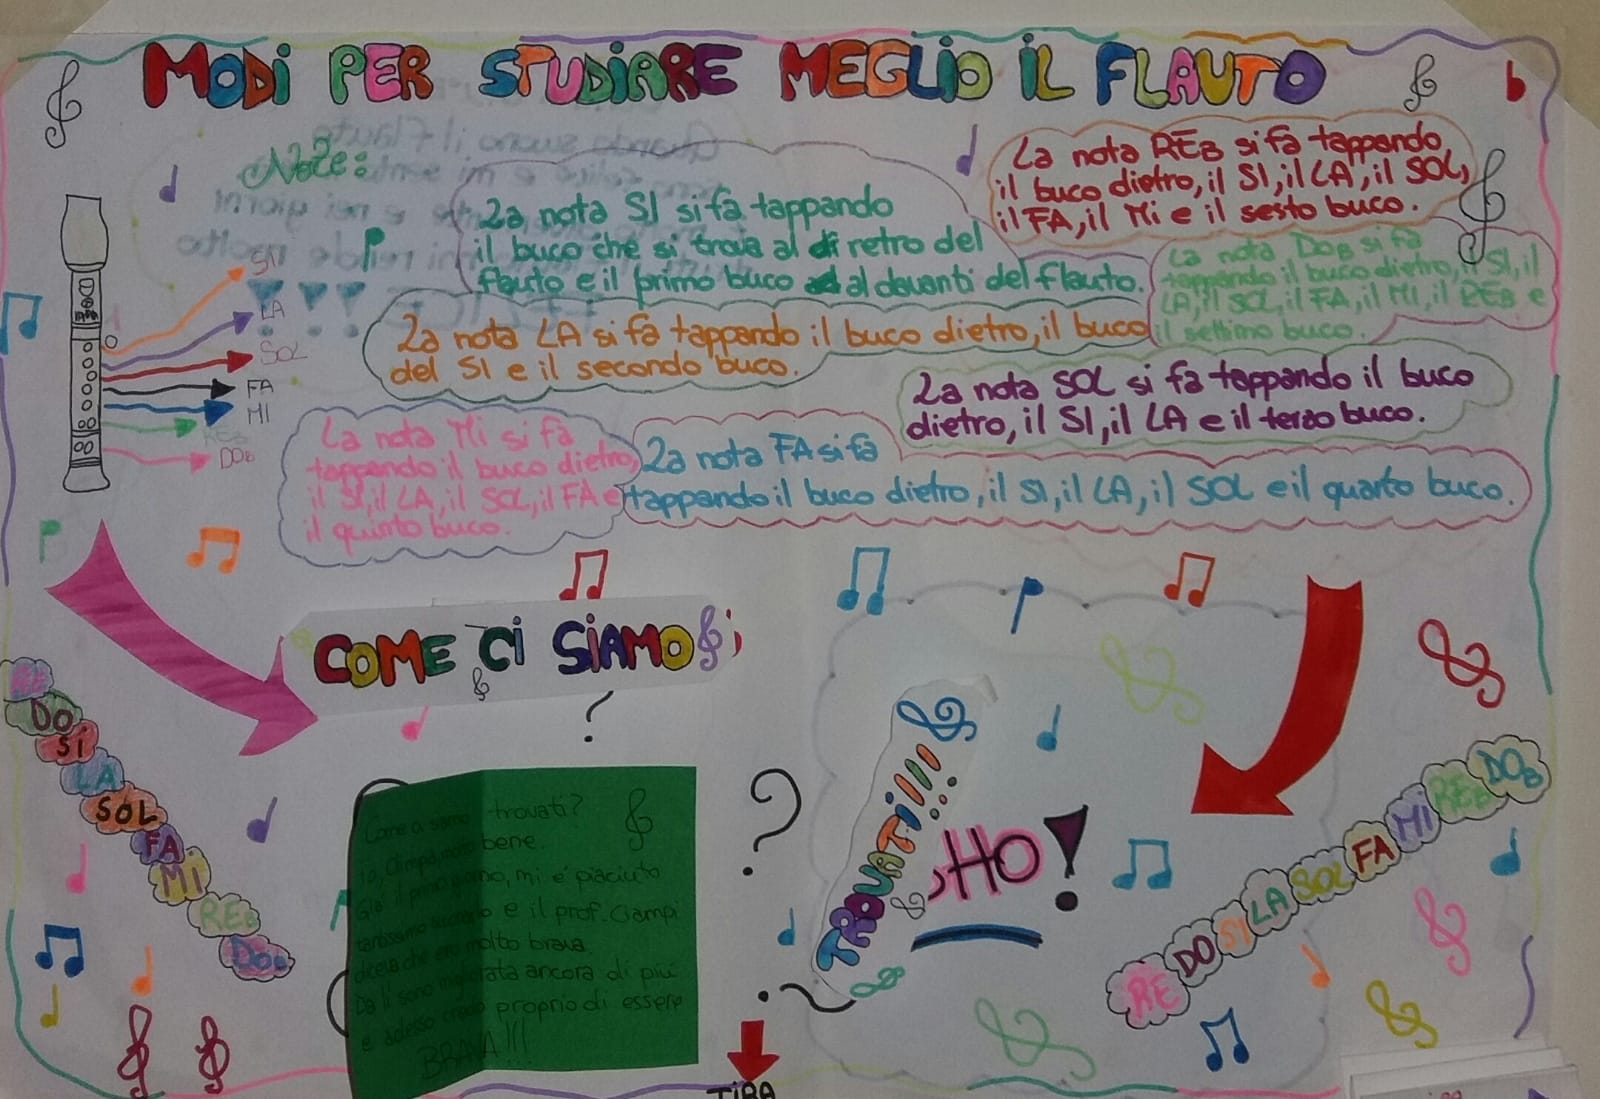 MODI PER STUDIARE MEGLIO IL FLAUTO
Note:
SI
LA
SOL
FA
MI
REB
DOB
La nota SI si fa tappando
il buco che si trova al di retro del
flauto e il primo buco al davanti del flauto.
La nota REB si fa tappando
il buco dietro, il SI, il LA, il SOL,
il FA, il Mi e il sesto buco.
La nota DOB si fa
tappando il buco dietro, il SI, il
LA, il SOL, il FA, il MI, il REB e
il settimo buco.
La nota LA si fa tappando il buco dietro, il buco
del SI e il secondo buco.
La nota SOL si fa tappando il buco
dietro, il SI, il LA e il terzo buco.
La nota Mi si fa
tappando il buco dietro,
il SI, il LA, il SOL, il FA e
il quinto buco.
La nota FA si fa
tappando il buco dietro, il SI, il LA, il SOL e il quarto buco.
COME CI SIAMO
?
TROVATI!!!!
HO!
RE
DO
SI
LA
SOL
FA
Mi
REB
DOB
Come ci siamo trovati?
Io, Olimpia, molto bene.
Già il primo giorno, mi è piaciuto
tantissimo suonarlo e il prof. Ciampi
diceva che ero molto brava.
Da lì sono migliorata ancora di più
e adesso credo proprio di essere
BRAVA!!!
?
?
RE DO SI LA SOL FA MI REB DOB
TIRA